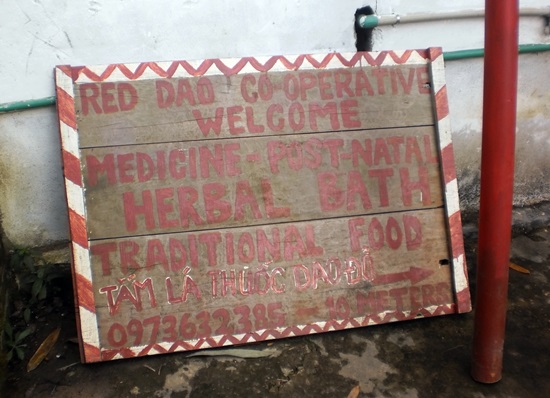 RED DAO CO-OPERATIVE
WELCOME
MEDICINE - POST-NATAL
HERBAL BATH
TRADITIONAL FOOD
TẮM LÁ THUỐC DAO ĐỎ
0973632385 - 10 METERS